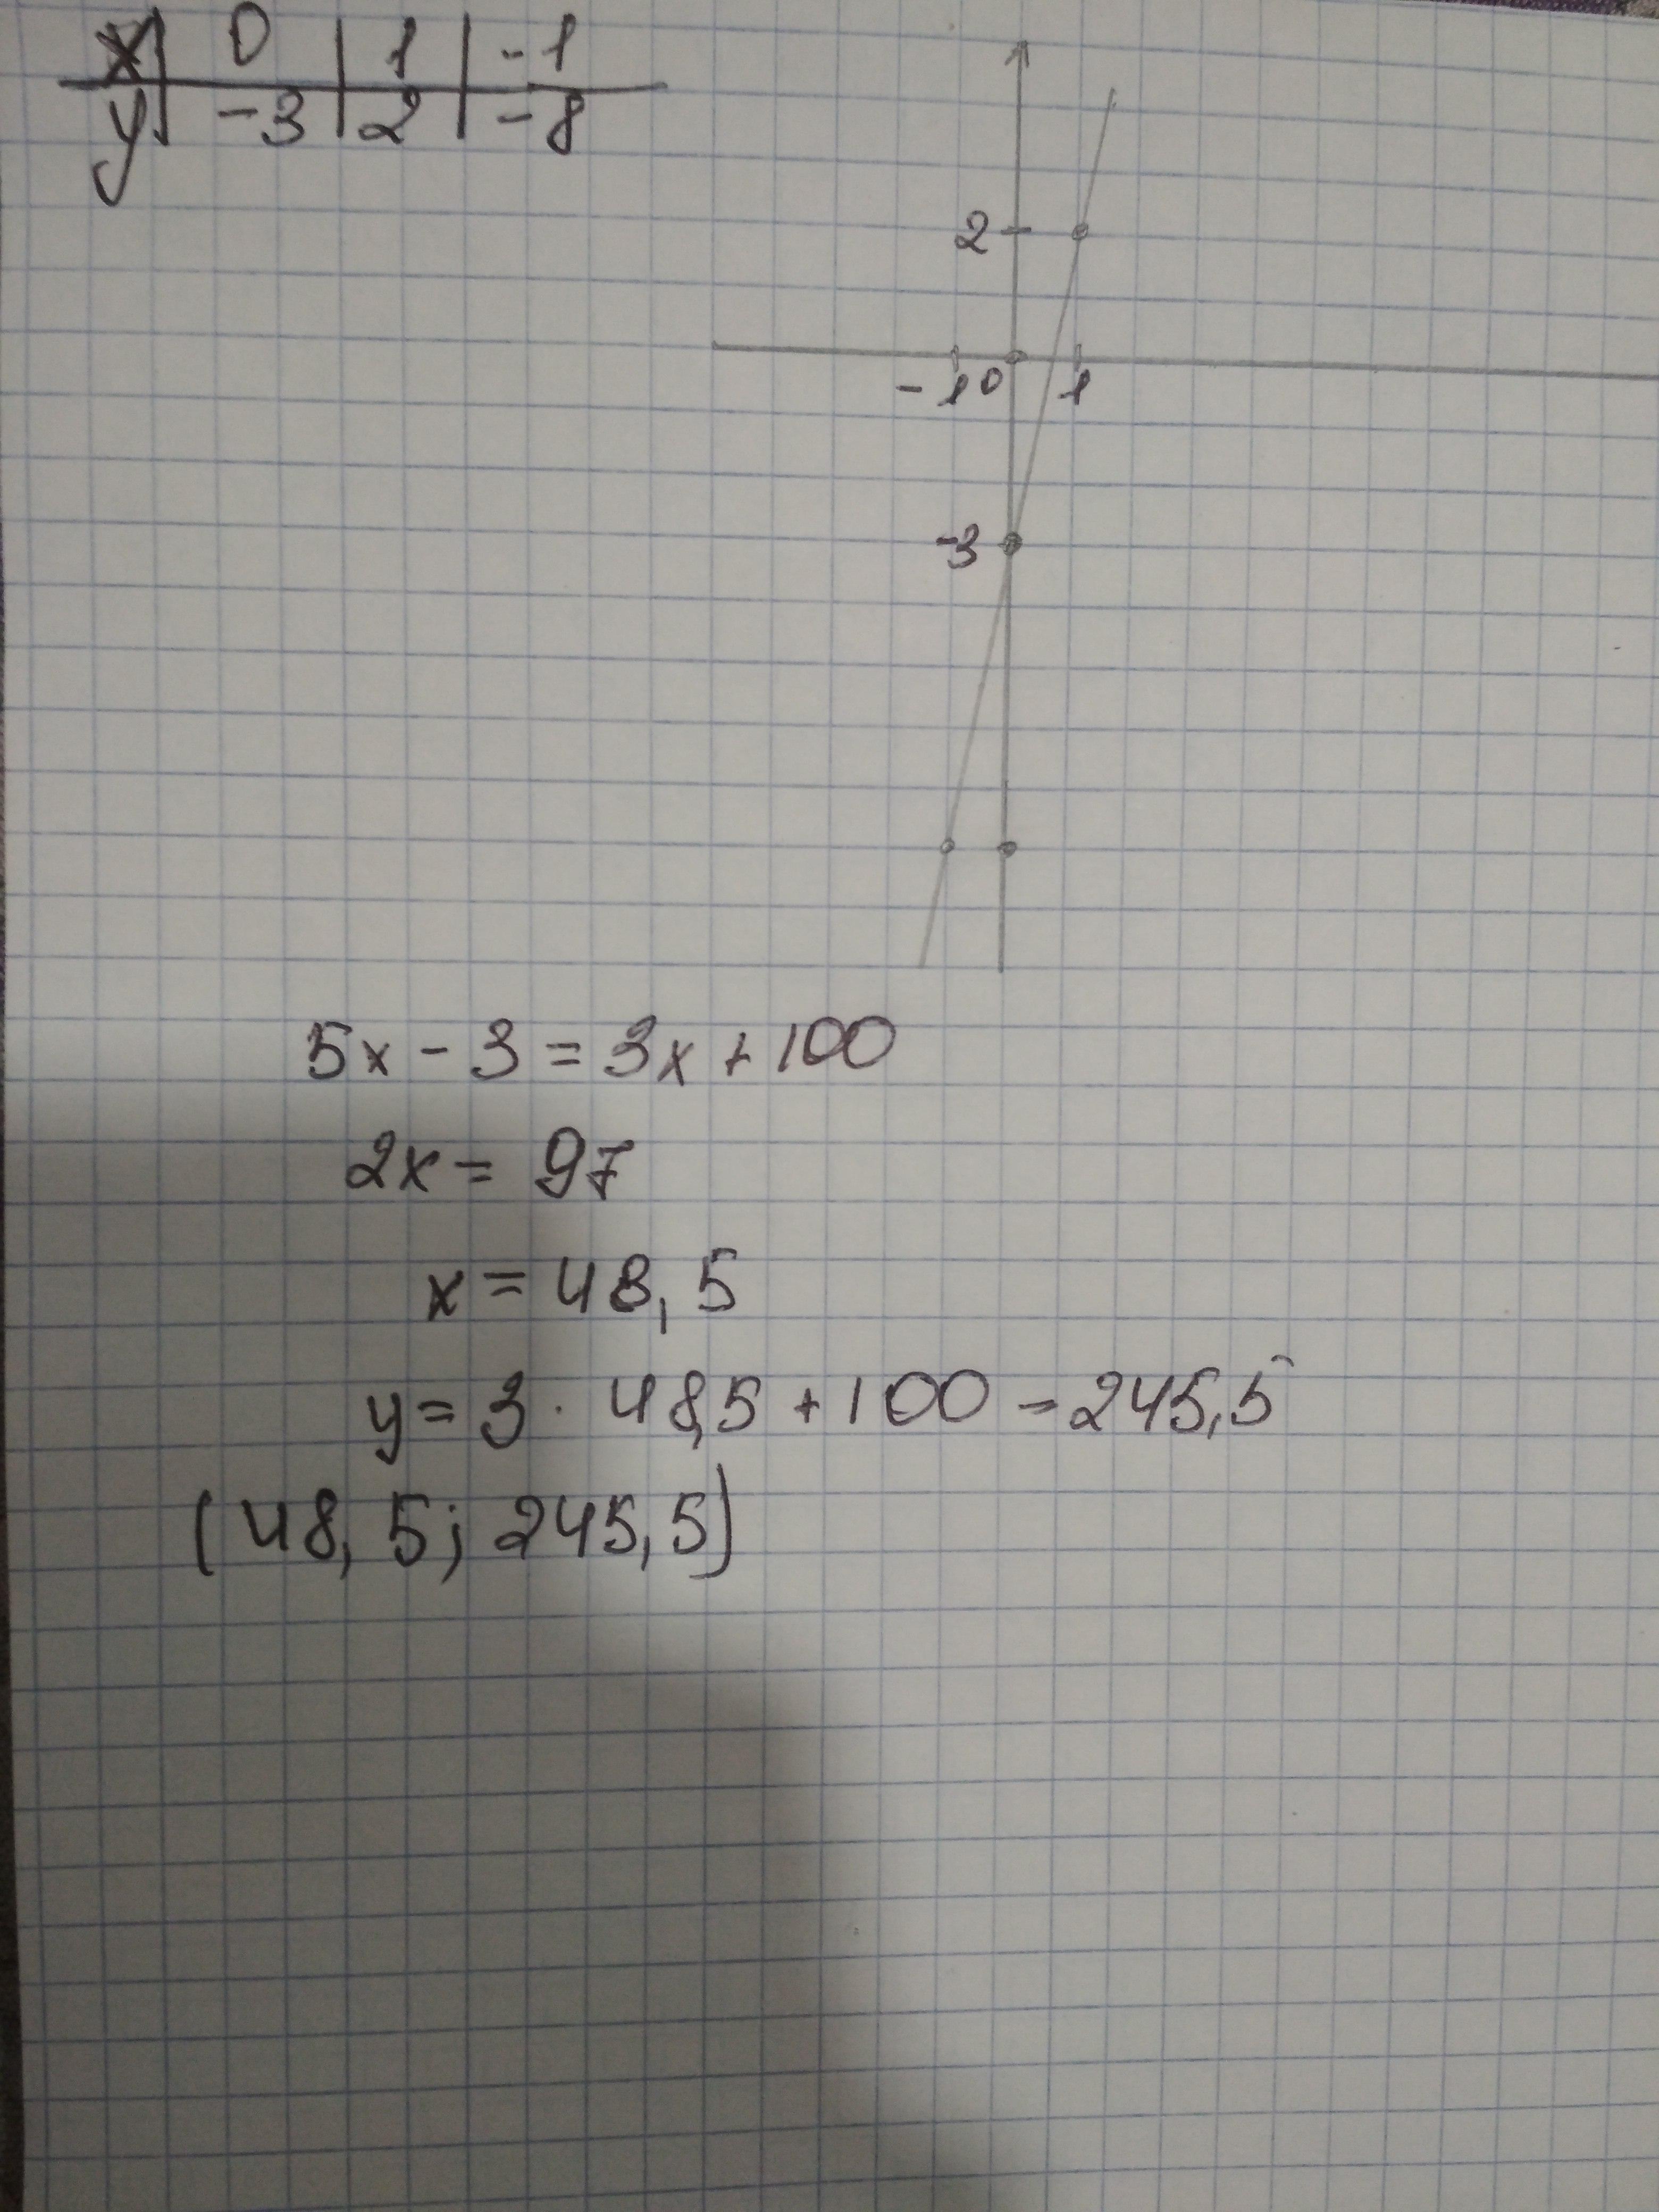 x 0 1 -1
y -3 2 -8
2
-1 0 1
-3
5x - 3 = 3x + 100
2x = 97
x = 48,5
y = 3 · 48,5 + 100 = 245,5
(48,5; 245,5)